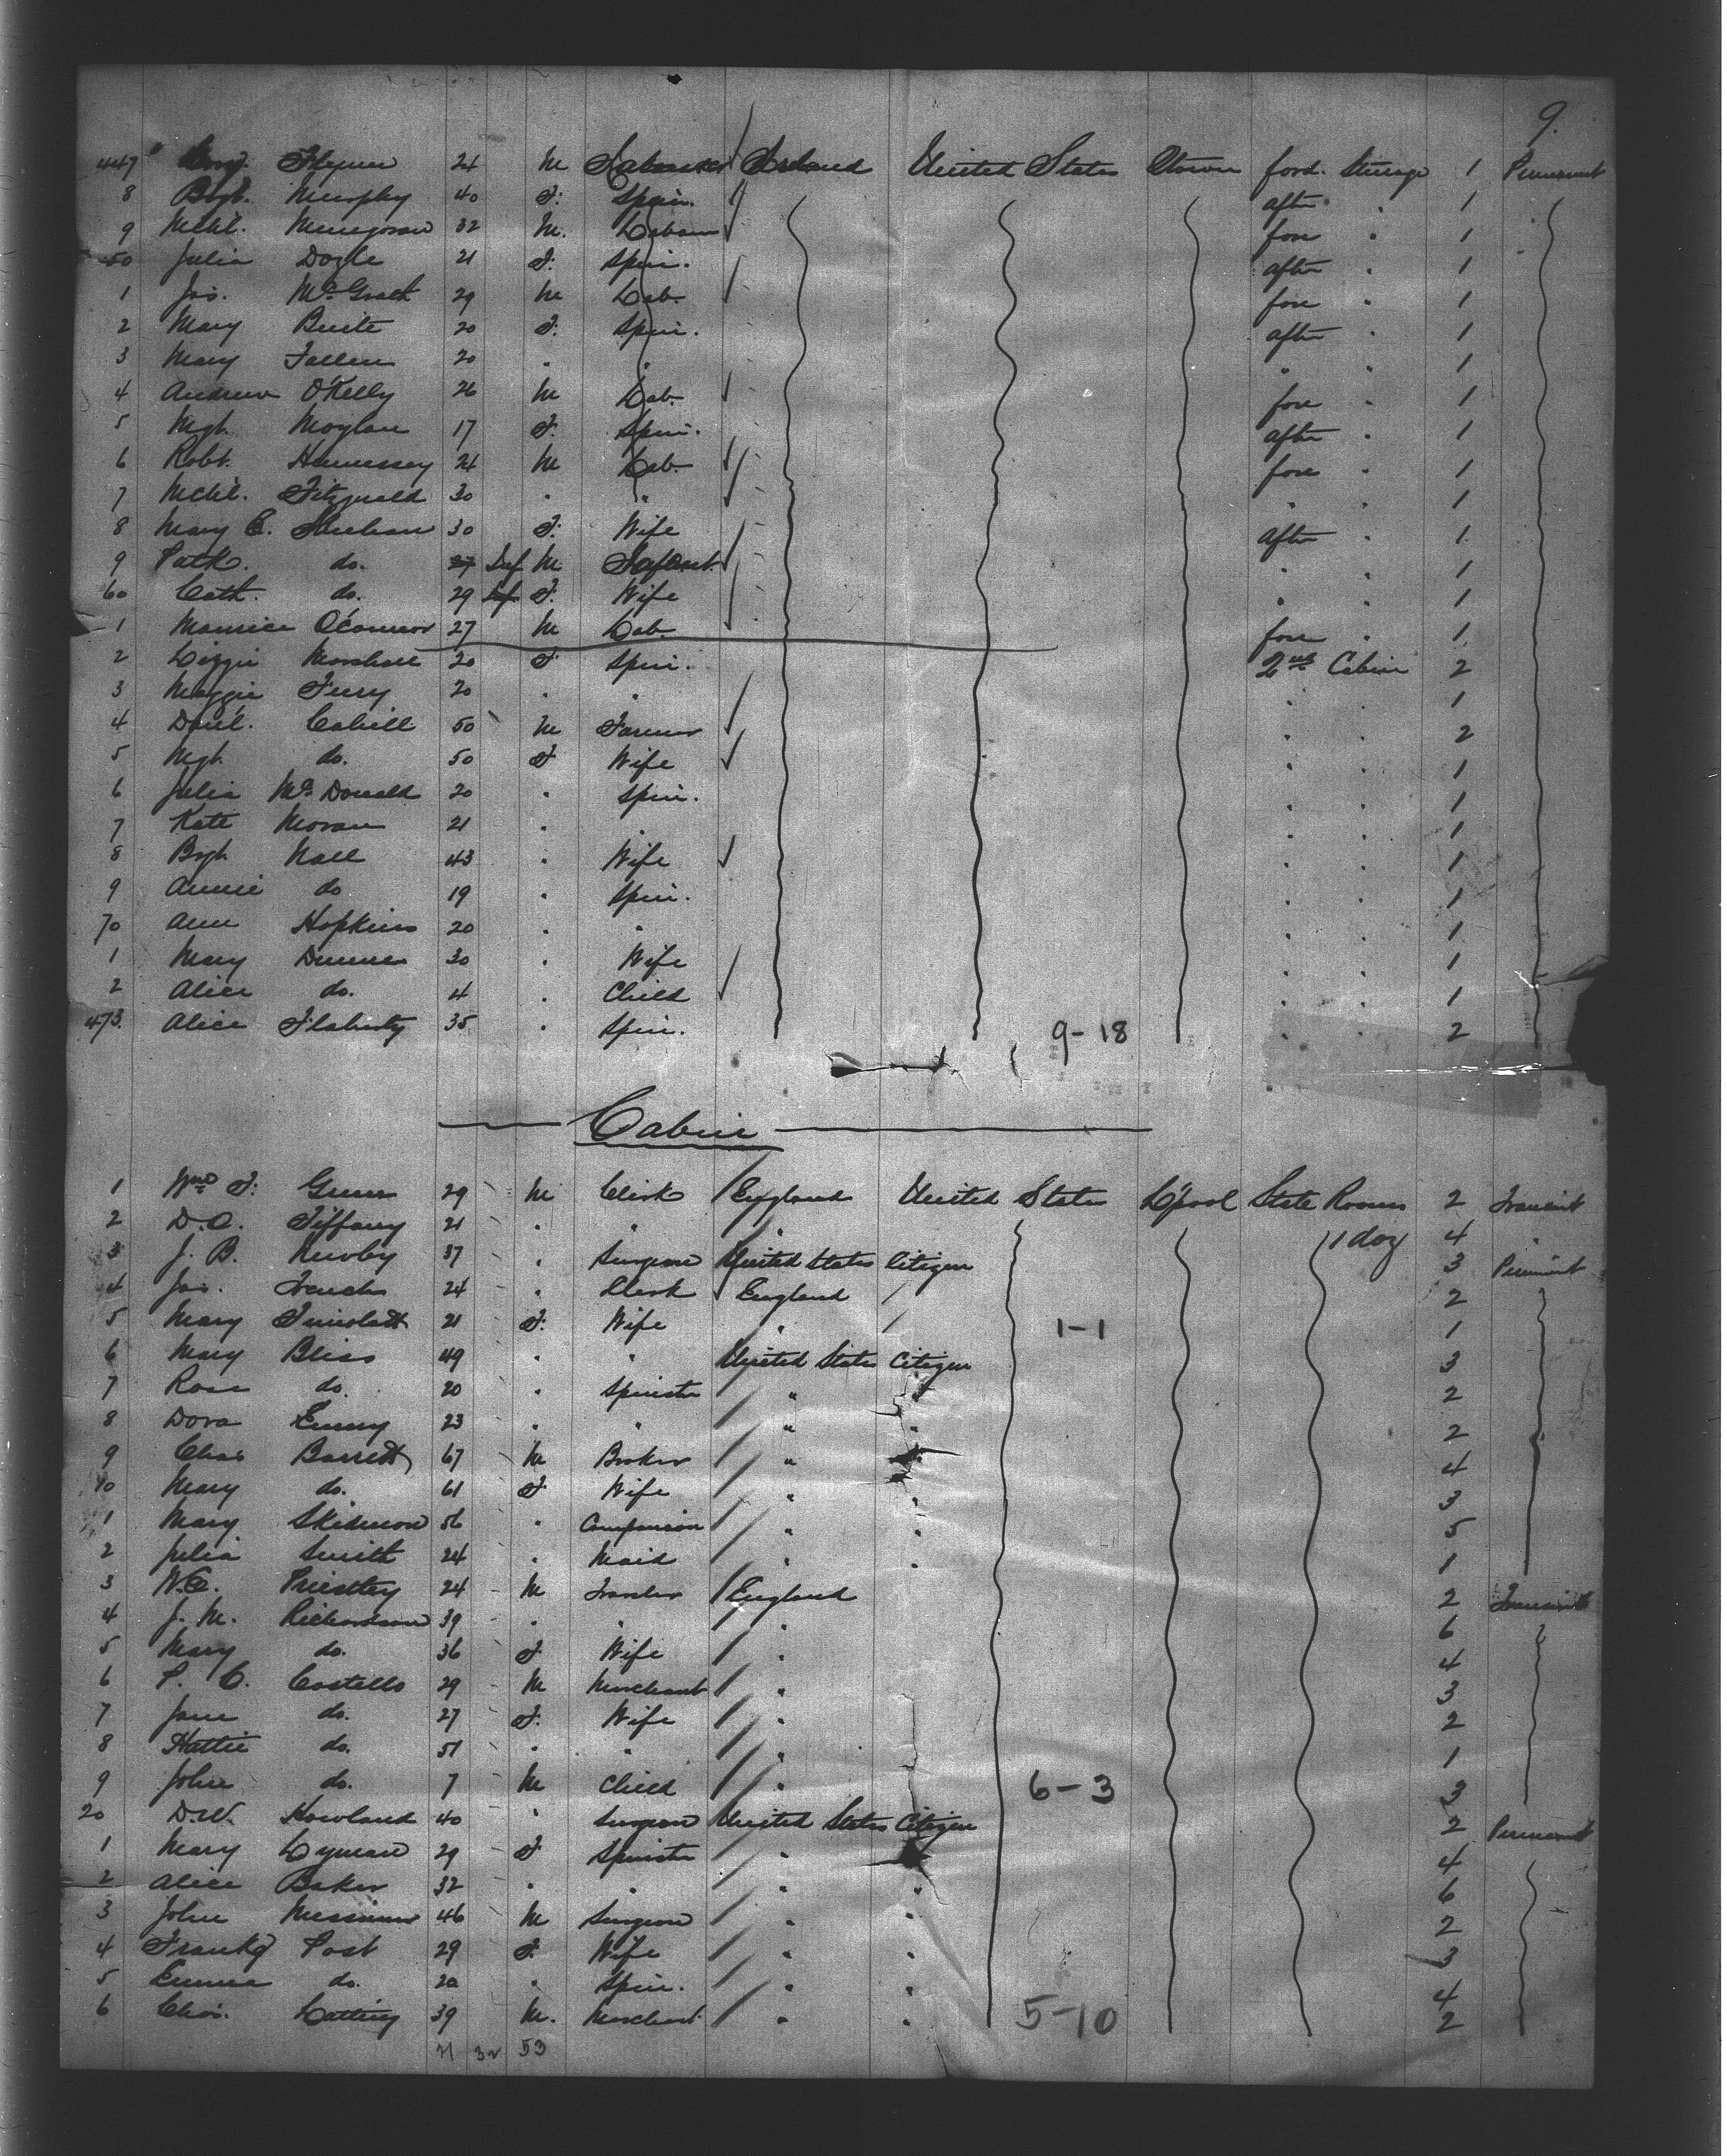 9.
447 Flynn 24 M Labourer Ireland United States Qtown ford. Steerage 1 Permanent
8 Bgt. Murphy 40 F. Spin. after " 1
9 Mchl. 32 M. Labour fore " 1
50 Julia Doyle 21 F. Spin. after " 1
1 Jas. McGrath 29 M Lab. fore " 1
2 Mary 20 F. Spin. after " 1
3 Mary Fallen 20 " " " " 1
4 Andrew O'Kelly 26 M Lab. fore " 1
5 Mgt. Moylan 17 F. Spin. after " 1
6 Robt. Hennessey 24 M Lab. fore " 1
7 Mchl. Fitzgerald 30 " " " " 1
8 Mary E. Sheehan 30 F. Wife after " 1
9 Patk. do. 27 Inf M Infant " " 1
60 Cath. do. 29 Inf F. Wife " " 1
1 Maurice O'Connor 27 M Lab. fore " 1
2 Lizzie Marshall 20 F Spin. 2nd Cabin 2
3 Maggie Fury 20 " " " " 1
4 Danl. Cahill 50 M Farmer " " 2
5 Mgt. do. 50 F Wife " " 1
6 Julia McDonald 20 " Spin. " " 1
7 Kate Moran 21 " " " " 1
8 Bgt. Nall 43 " Wife " " 1
9 Annie do 19 " Spin. " " 1
70 Ann Hopkins 20 " " " " 1
1 Mary Dunne 30 " Wife " " 1
2 Alice do. 4 " Child " " 1
473. Alice Flaherty 35 " Spin. 9-18 " " 2
Cabin
1 Wm F. Green 29 M Clerk England United States L'pool State Rooms 2 Transit
2 D.C. Tiffany 21 " " " 1 day 4 "
3 J. B. Newby 37 " Surgeon United States Citizen 3 Permant
4 Jas. French 24 " Clerk England 2
5 Mary 21 F. Wife " 1-1 1
6 Mary Bliss 49 " " United States Citizen 3
7 Rose do. 20 " Spinster " " 2
8 Dora 23 " " " " 2
9 Chas Barrett 67 M Broker " " 4
10 Mary do. 61 F Wife " " 3
1 Mary Skidmore 56 " Companion " " 5
2 Julia Smith 24 " Maid " " 1
3 W.C. Priestley 24 M Traveler England 2 Transit
4 J. M. Richardson 39 " " " 6
5 Mary do. 36 F Wife " 4
6 P. C. Costello 29 M Merchant " 3
7 Jane do. 27 F. Wife " 2
8 Hattie do. 51 " " " 1
9 John do. 7 M Child " 6-3 3
20 D.W. Howland 40 " Surgeon United States Citizen 2 Permanent
1 Mary Lyman 29 F Spinster " " 4
2 Alice Baker 32 " " " " 6
3 John 46 M Surgeon " " 2
4 Post 29 F. Wife " " 3
5 Emma do. 20 " Spin. " " 4
6 Chas. 39 M. Merchant " " 5-10 2
21 32 53